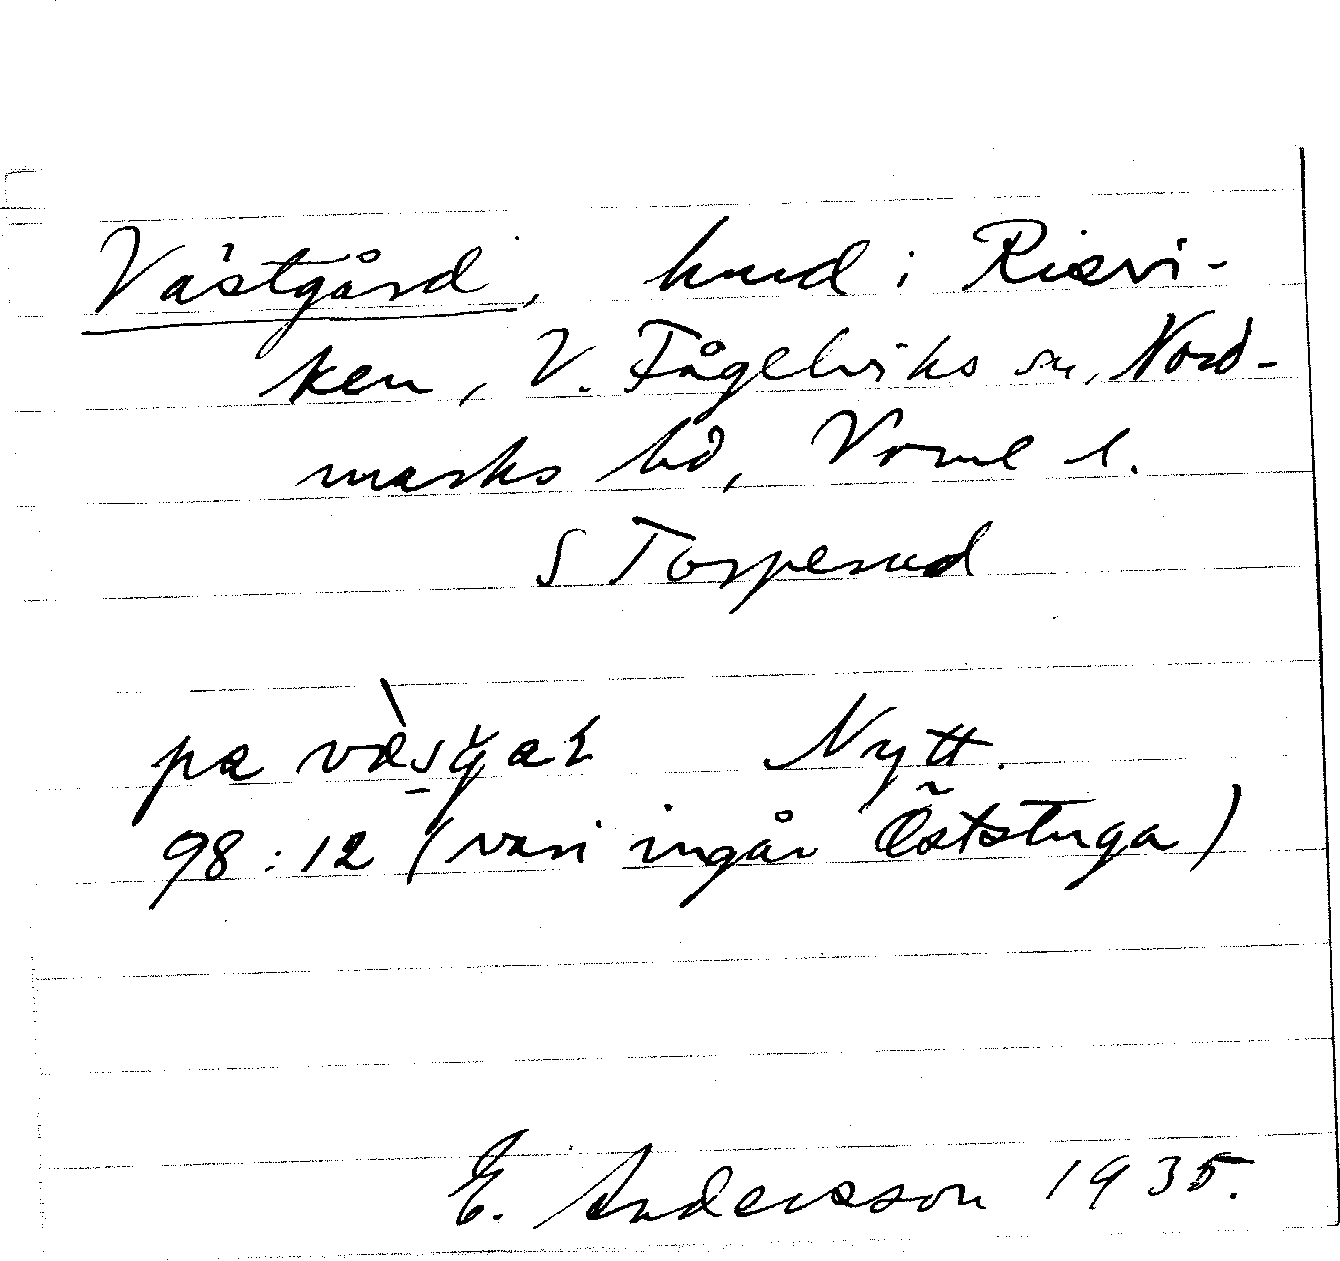 Västgård, hmd i Risvi-
ken, V. Fågelviks sn, Nord-
marks hd, Vrml l.
S Torperud
pa væsgaɽ Nytt.
98:12 (vari ingår Öststuga)
E. Andersson 1935.